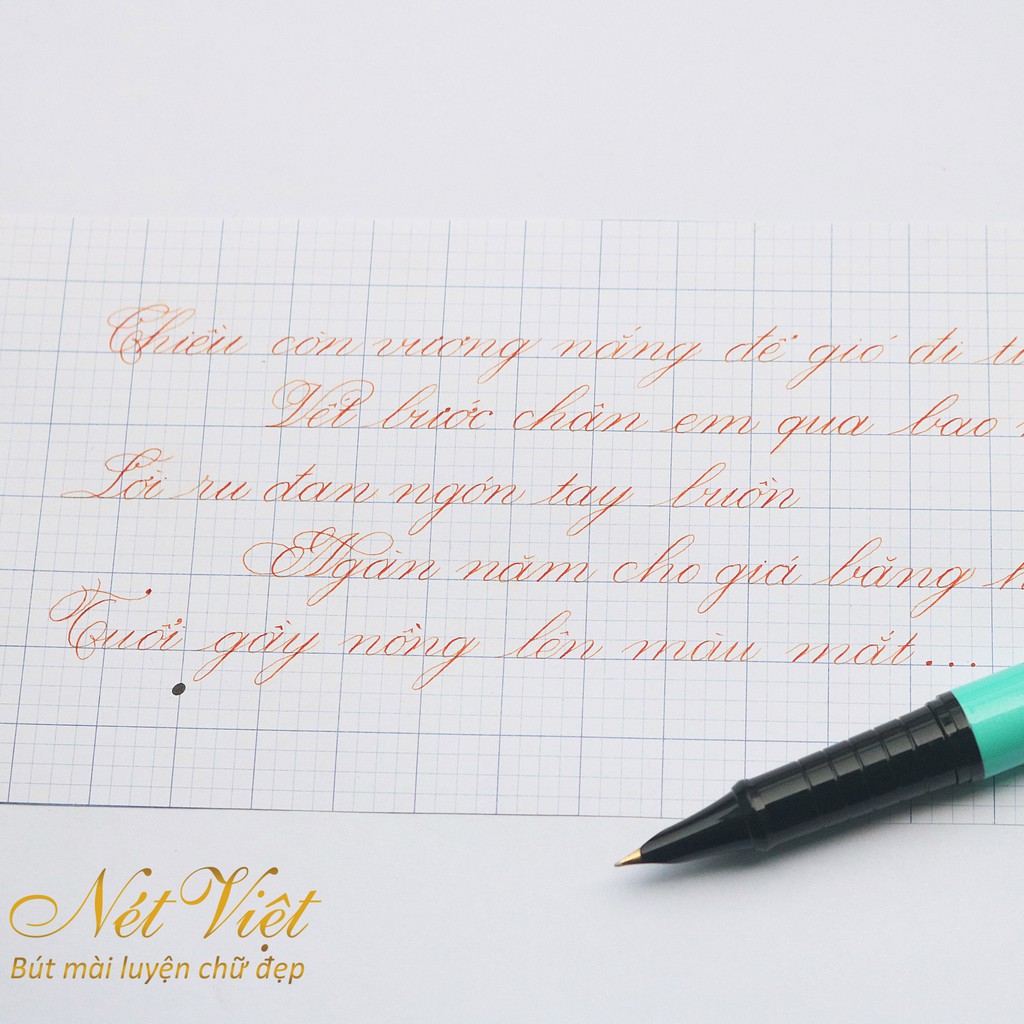 Chiều còn vương nắng để gió đi
Vết bước chân em qua bao
Lời ru đan ngón tay buồn
Ngàn năm cho giá băng
Tuổi gầy nồng lên màu mắt...
Nét Việt
Bút mài luyện chữ đẹp